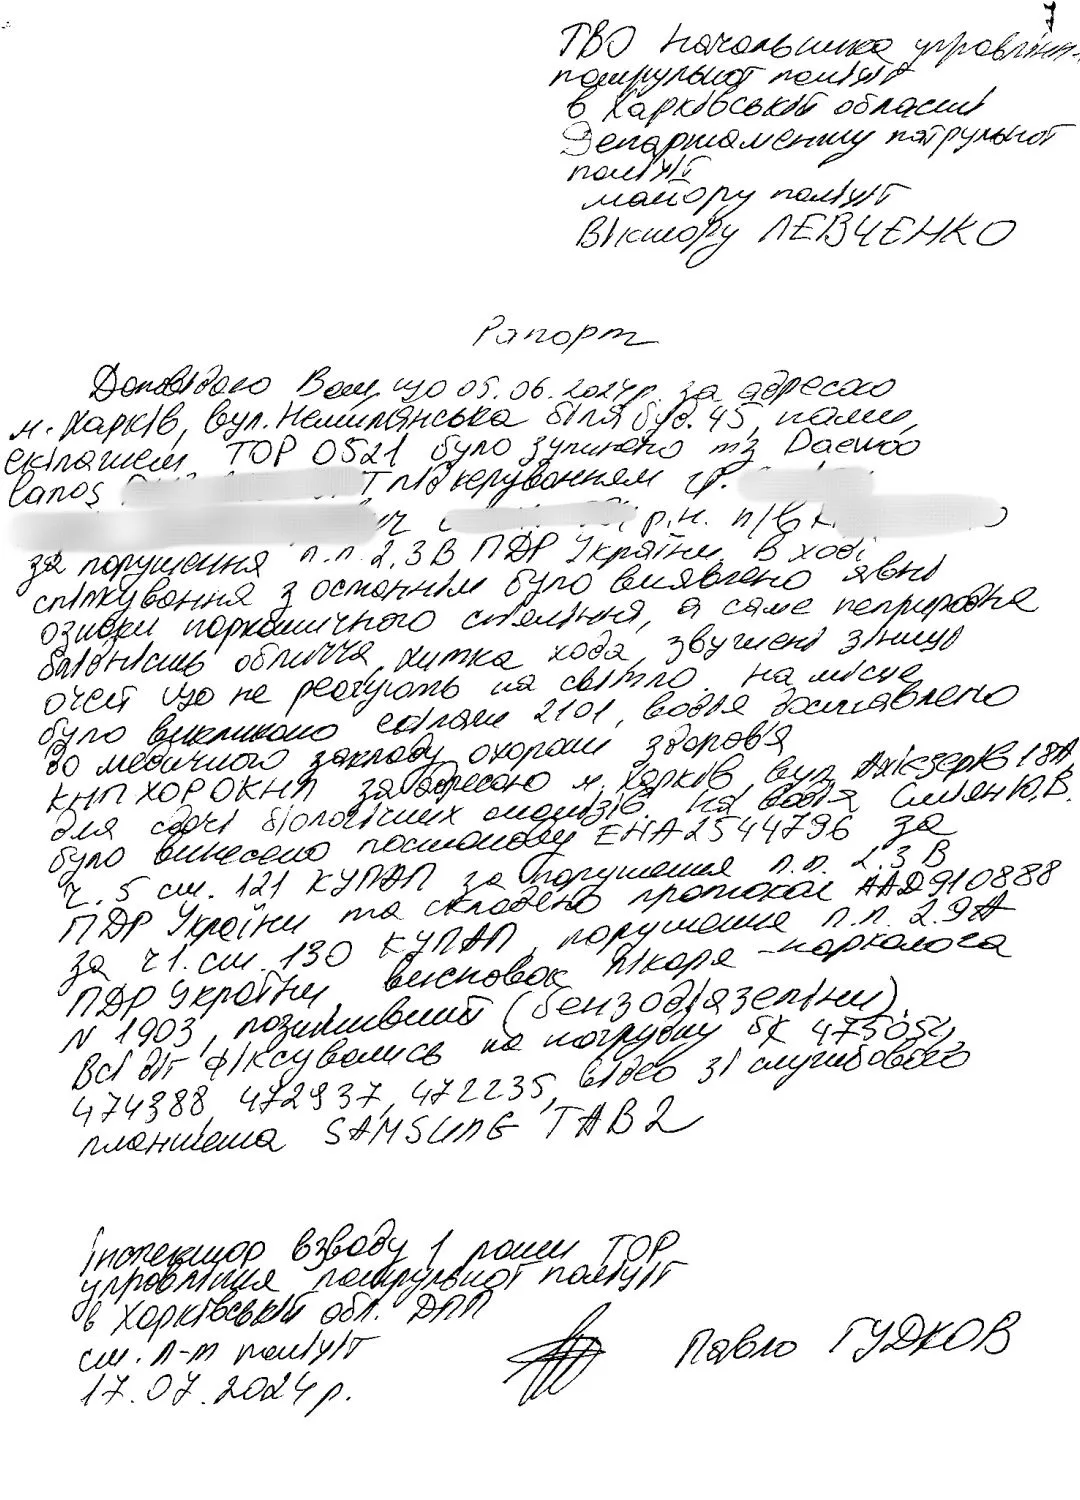 7
ТВО Начальника управлінн-
патрульної поліції
в Харківській області
Департаменту патрульної
поліції
майору поліції
Віктору ЛЕВЧЕНКО
Рапорт
Доповідаю Вам, що 05.06.2024р. за адресою
м. Харків, вул. Немишлянська біля буд. 45, нами,
екіпажем, ТОР 0521 було зупинено тз Daewoo
Lanos під керуванням гр.
р.н. п/в
за порушення п.п. 2.3В ПДР України. В ході
спілкування з останнім було виявлено явні
ознаки наркотичного сп'яніння, а саме неприродна
блідність обличчя, хитка хода, звужені зіниці
очей що не реагують на світло. На місце
було викликано екіпаж 2101, водія доставлено
до медичного закладу охорони здоров'я
КНП ХОР ОКНЛ за адресою м. Харків, вул. Ахієзерів 18А,
для здачі біологічних аналізів. На водія Сміян Ю.В.
було винесено постанову ЕНА2544796 за
ч. 5 ст. 121 КУПАП за порушення п.п. 2.3 В
ПДР України та складено протокол ААД910888
за ч1. ст. 130 КУПАП, порушення п.п. 2.9А
ПДР України, висновок лікаря-нарколога
N 1903, позитивний (бензодіазепіни).
Всі дії фіксувались на нагрудну БК 475054,
474388, 472937, 472235, відео зі службового
планшета SAMSUNG TAB2
Інспектор взводу 1 роти ТОР
управління патрульної поліції
в Харківській обл. ДПП
ст. л-т поліції
17.07.2024 р.
Павло ГУДКОВ